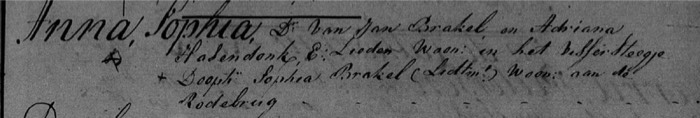 Anna, Sophia, Dr Van Jan Brakel, en Adriana
Hasendonk, E: Lieden Woon: in het visser steegje
+ Doopte Sophia Brakel (Lidtm:) Woon: aan de
Rodebrug